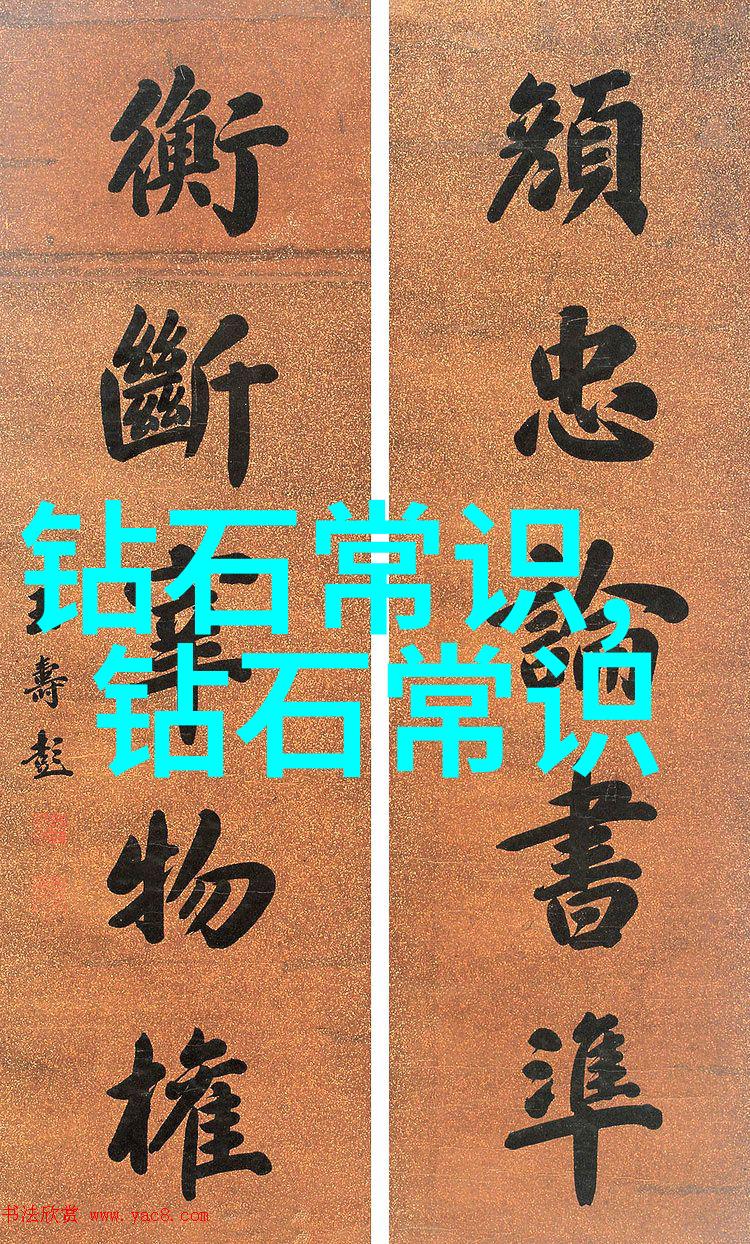 顏忠論書準
衡斷宰物權
王壽彭
钻石常识,
钻石常识
书法欣赏 www.yac8.com